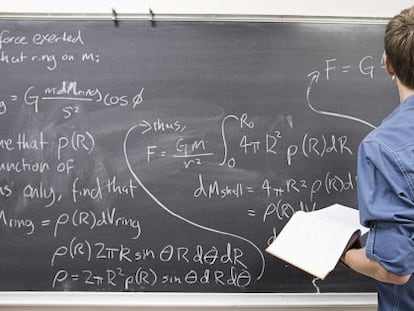 force exerted
that ring on m:
G m dMring / s² cosϕ
me that ρ(R)
function of
only, find that
Mring = ρ(R) dVring
ρ(R) 2πR sin Θ R dΘ
ρ = 2πR²ρ(R) sin Θ dΘ
thus,
F = G m / r² ∫₀^Ro 4πR² ρ(R) dR
dMshell = 4πR² ρ(R)
= ρ(R)
F = G